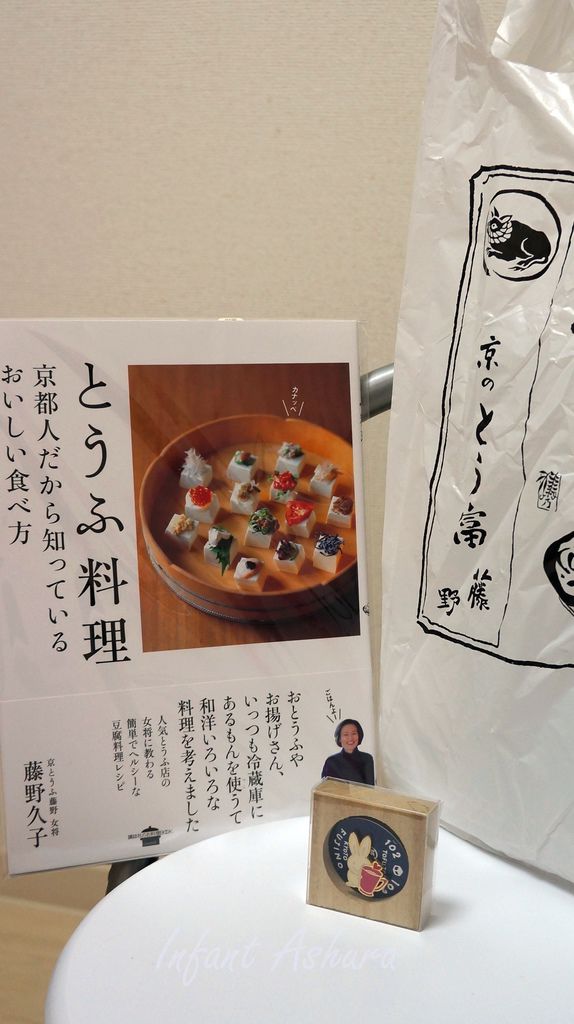 とうふ料理
京都人だから知っている
おいしい食べ方
カナッペ
ごはんよ!
おとうふや
お揚げさん、
いっつも冷蔵庫に
あるもんを使うて
和洋いろいろな
料理を考えました
人気とうふ店の
女将に教わる
簡単でヘルシーな
豆腐料理レシピ
京とうふ藤野 女将
藤野久子
京のとう富
藤野
102
KYOTO
FUJINO
Infant Ashura